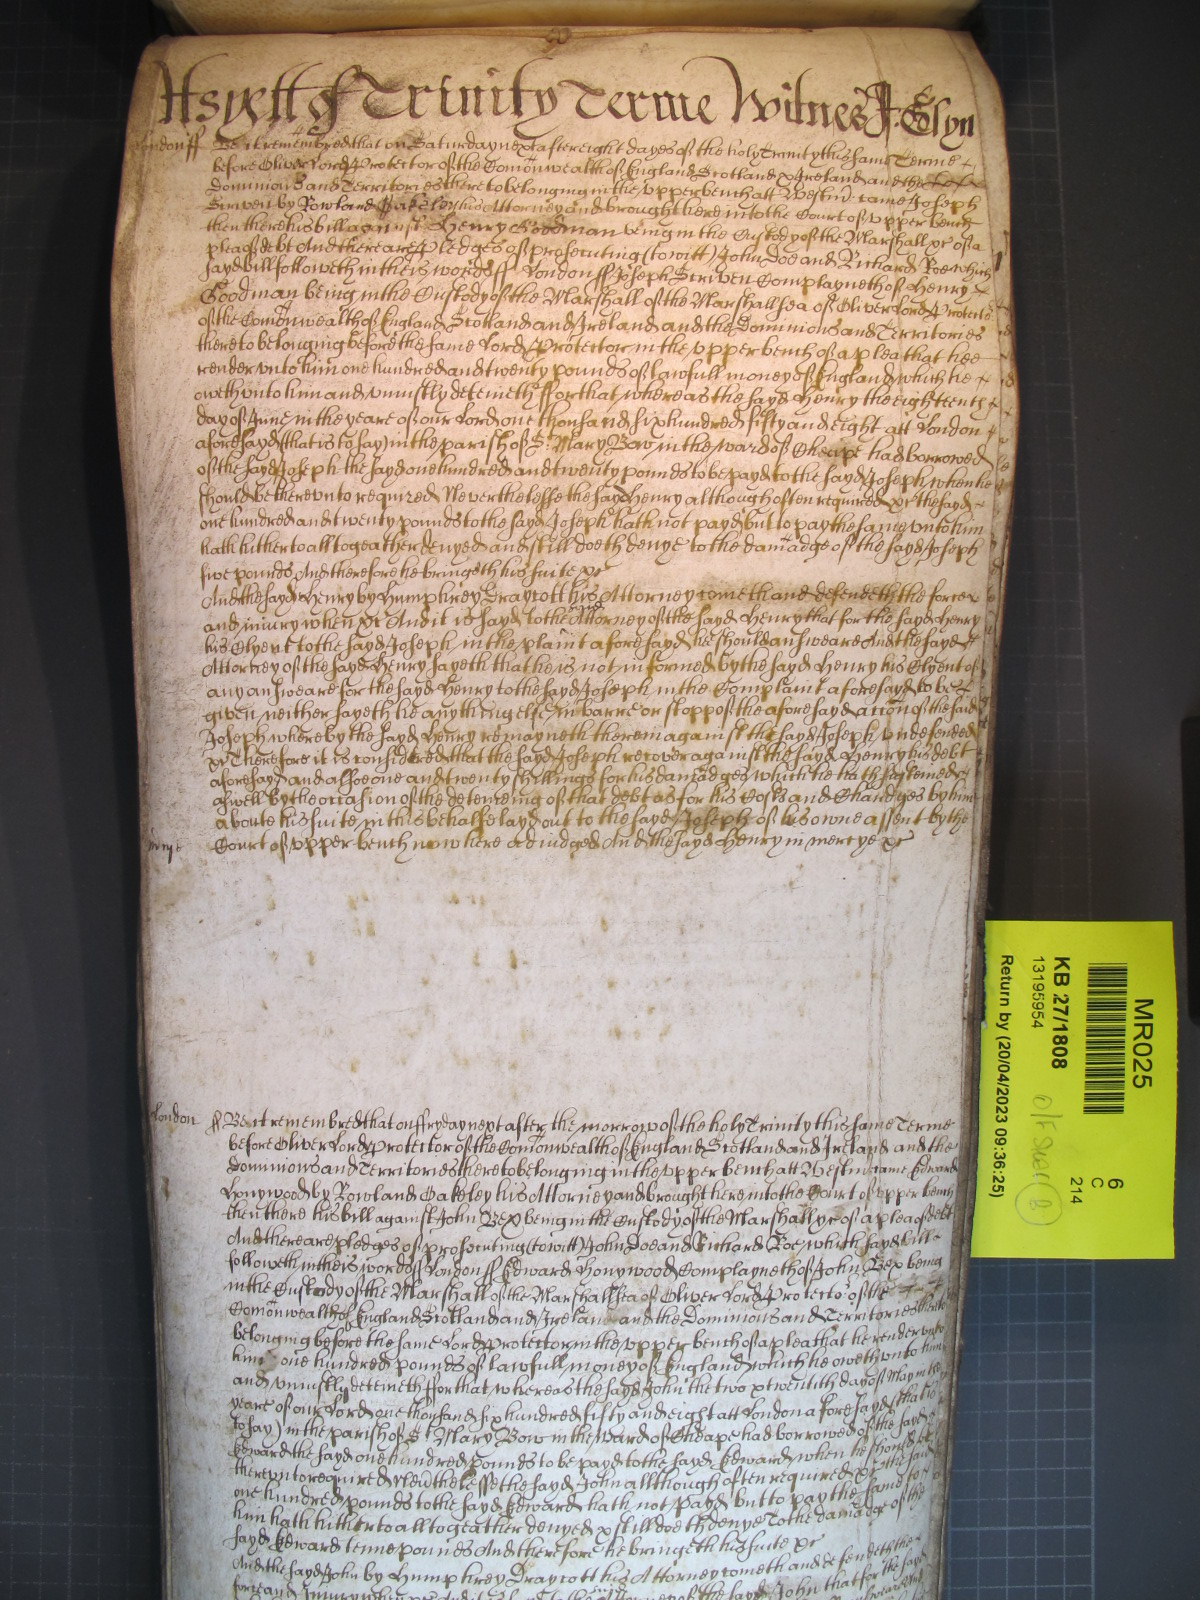 As yett of Trinity Terme Witnes J: Glyn
London ss Be it remembred that on Saturday next after eight dayes of the holy Trinity this same Terme
before Oliver Lord Protector of the Comonwealth of England Scotland & Ireland and the
Dominions and Territories thereto belonging in the upper bench att Westm̃ came Joseph
Scriven by Rowland Oakeley his Attorney and brought here into the Court of upper bench
then there his bill against Henry Goodman being in the Custody of the Marshall &c of a
plea of debt And there are pledges of prosecuting (to witt) John Doe and Richard Roe which
sayd bill followeth in theis words ss London ss Joseph Scriven Complayneth of Henry
Goodman being in the Custody of the Marshall of the Marshallsea of Oliver Lord Protector
of the Comonwealth of England Scotland and Ireland and the Dominions and Territories
thereto belonging before the same Lord Protector in the upper bench of a plea that hee
render unto him one hundred and twenty pounds of lawfull money of England which he
oweth unto him and uniustly deteineth ffor that whereas the sayd Henry the eighteenth
day of June in the yeare of our Lord one thousand six hundred fifty and eight att London
aforesayd (that is to say) in the parish of St Mary Bow in the ward of Cheape had borrowed
of the sayd Joseph the sayd one hundred and twenty pounds to be payd to the sayd Joseph when he
should be thereunto required Neverthelesse the sayd Henry although often required &c the sayd
one hundred and twenty pounds to the sayd Joseph hath not payd but to pay the same unto him
hath hitherto alltogeather denyed and still doeth denye to the damadge of the sayd Joseph
five pounds And therefore he bringeth his suite &c
And the sayd Henry by Humphrey Draycott his Attorney cometh and defendeth the force
and iniury when &c And it is sayd to the Attorney of the sayd Henry that for the sayd Henry
his Clyent to the sayd Joseph in the plaint aforesayd he should answeare And the sayd
Attorney of the sayd Henry sayeth that he is not informed by the sayd Henry his Clyent of
any answeare for the sayd Henry to the sayd Joseph in the Complaint aforesayd to be
given neither sayeth he any thing else in barre or stopp of the aforesayd action of the said
Joseph whereby the sayd Henry remayneth therein against the sayd Joseph undefended
&c Therefore it is considered that the sayd Joseph recover against the sayd Henry his debt
aforesayd and alsoe one and twenty shillings for his damadges which he hath susteined
aswell by the occasion of the deteineing of that debt as for his Costs and Chardges by him
aboute his suite in this behalfe layd out to the sayd Joseph of his owne assent by the
mercye Court of upper bench now here adiudged And the sayd Henry in mercye &c
London ss Be it remembred that on ffryday next after the morrow of the holy Trinity this same Terme
before Oliver Lord Protector of the Comonwealth of England Scotland and Ireland and the
Dominions and Territories thereto belonging in the upper bench att Westm̃ came Edward
Honywood by Rowland Oakeley his Attorney and brought here into the Court of upper bench
then there his bill against John Bex being in the Custody of the Marshall &c of a plea of debt
And there are pledges of prosecuting (to witt) John Doe and Richard Roe which sayd bill
followeth in theis words ss London ss Edward Honywood Complayneth of John Bex being
in the Custody of the Marshall of the Marshallsea of Oliver Lord Protector of the
Comonwealth of England Scotland and Ireland and the Dominions and Territories thereto
belonging before the same Lord Protector in the upper bench of a plea that he render unto
him one hundred pounds of lawfull money of England which he oweth unto him
and uniustly deteineth ffor that whereas the sayd John the two & twentith day of May in the
yeare of our Lord one thousand six hundred fifty and eight att London aforesayd (that is
to say) in the parish of St Mary Bow in the Ward of Cheape had borrowed of the sayd
Edward the sayd one hundred pounds to be payd to the sayd Edward when he should be
thereunto required Neverthelesse the sayd John allthough often required &c the said
one hundred pounds to the sayd Edward hath not payd but to pay the same to
him hath hitherto alltogeather denyed & still doeth denye To the damadge of the
sayd Edward tenne pounds And therefore he bringeth his suite &c
And the sayd John by Humphrey Draycott his Attorney cometh and defendeth the
force and Iniury when &c And it is sayd to the Attorney of the sayd John that for the sayd
MR025
6
C
214
KB 27/1808
13195954
Return by (20/04/2023 09:36:25)